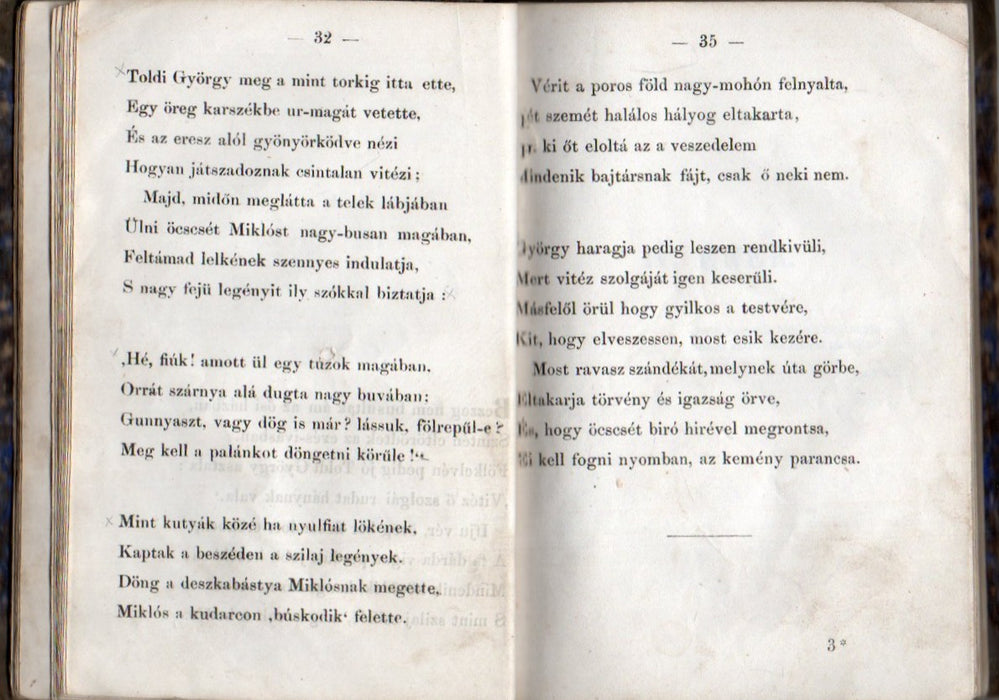 — 32 —
Toldi György meg a mint torkig itta ette,
Egy öreg karszékbe ur-magát vetette,
És az eresz alól gyönyörködve nézi
Hogyan játszadoznak csintalan vitézi;
Majd, midőn meglátta a telek lábjában
Ülni öcscsét Miklóst nagy-busan magában,
Feltámad lelkének szennyes indulatja,
S nagy fejü legényit ily szókkal biztatja :
‚Hé, fiúk! amott ül egy túzok magában,
Orrát szárnya alá dugta nagy buvában;
Gunnyaszt, vagy dög is már? lássuk, fölrepűl-e?
Meg kell a palánkot döngetni körűle!“
Mint kutyák közé ha nyulfiat lökének,
Kaptak a beszéden a szilaj legények.
Döng a deszkabástya Miklósnak megette,
Miklós a kudarcon ‚búskodik‘ felette.
— 35 —
Vérit a poros föld nagy-mohón felnyalta,
szemét halálos hályog eltakarta,
ki őt eloltá az a veszedelem
Mindenik bajtársnak fájt, csak ő neki nem.
György haragja pedig leszen rendkivüli,
Mert vitéz szolgáját igen keserüli.
Másfelől örül hogy gyilkos a testvére,
Kit, hogy elveszessen, most esik kezére.
Most ravasz szándékát, melynek úta görbe,
Eltakarja törvény és igazság örve,
És, hogy öcscsét biró hirével megrontsa,
Ki kell fogni nyomban, az kemény parancsa.
3*